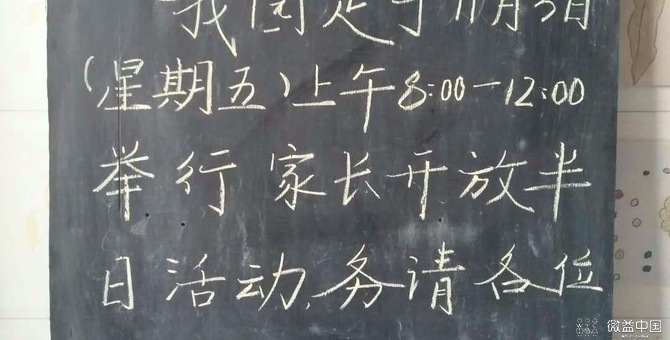 我园定于11月3日
(星期五)上午8:00-12:00
举行家长开放半
日活动,务请各位
微益中国